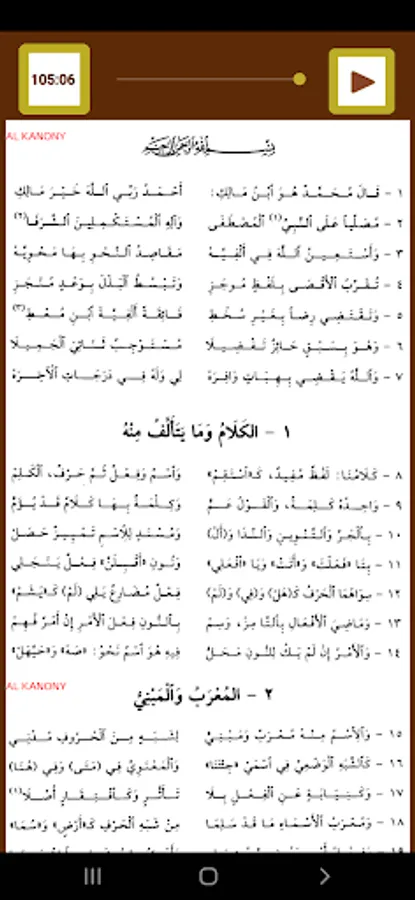 105:06
AL KANONY
بسم الله الرحمن الرحيم
١ - قَالَ مُحَمَّدٌ هُوَ ٱبْنُ مَالِكِ: أَحْمَدُ رَبِّي ٱللَّهَ خَيْرَ مَالِكِ
٢ - مُصَلِّياً عَلَى ٱلنَّبِيِّ(١) ٱلْمُصْطَفَى وَآلِهِ ٱلْمُسْتَكْمِلِينَ ٱلشَّرَفَا(٢)
٣ - وَأَسْتَعِينُ ٱللَّهَ فِي أَلْفِيَّهْ مَقَاصِدُ ٱلنَّحْوِ بِهَا مَحْوِيَّهْ
٤ - تُقَرِّبُ ٱلأَقْصَى بِلَفْظٍ مُوجَزِ وَتَبْسُطُ ٱلْبَذْلَ بِوَعْدٍ مُنْجَزِ
٥ - وَتَقْتَضِي رِضاً بِغَيْرِ سُخْطِ فَائِقَةً أَلْفِيَّةَ ٱبْنِ مُعْطِ(٣)
٦ - وَهْوَ بِسَبْقٍ حَائِزٌ تَفْضِيلَا مُسْتَوْجِبٌ ثَنَائِيَ ٱلْجَمِيلَا
٧ - وَٱللَّهُ يَقْضِي بِهِبَاتٍ وَافِرَهْ لِي وَلَهُ فِي دَرَجَاتِ ٱلآخِرَهْ
١ - الكَلَامُ وَمَا يَتَأَلَّفُ مِنْهُ
٨ - كَلَامُنَا: لَفْظٌ مُفِيدٌ، كَـ«ٱسْتَقِمْ» وَٱسْمٌ وَفِعْلٌ ثُمَّ حَرْفٌ، ٱلْكَلِمْ
٩ - وَاحِدُهُ كَلِمَةٌ، وَٱلْقَوْلُ عَمّْ وَكِلْمَةٌ بِهَا كَلَامٌ قَدْ يُؤَمّْ
١٠ - بِٱلْجَرِّ وَٱلتَّنْوِينِ وَٱلنِّدَا وَ(أَلْ) وَمُسْنَدٍ لِلٱسْمِ تَمْيِيزٌ حَصَلْ
١١ - بِتَا «فَعَلْتَ» وَ«أَتَتْ» وَيَا «ٱفْعَلِي» وَنُونِ «أَقْبِلَنَّ» فِعْلٌ يَنْجَلِي
١٢ - سِوَاهُمَا ٱلْحَرْفُ كَـ(هَلْ) وَ(فِي) وَ(لَمْ) فِعْلٌ مُضَارِعٌ يَلِي (لَمْ) كَـ«يَشَمْ»
١٣ - وَمَاضِيَ ٱلأَفْعَالِ بِٱلتَّا مِزْ، وَسِمْ بِٱلنُّونِ فِعْلَ ٱلأَمْرِ إِنْ أَمْرٌ فُهِمْ
١٤ - وَٱلأَمْرُ إِنْ لَمْ يَكُ لِلنُّونِ مَحَلّْ فِيهِ هُوَ ٱسْمٌ نَحْوُ: «صَهْ» وَ«حَيَّهَلْ»
AL KANONY
٢ - المُعْرَبُ وَٱلْمَبْنِيُّ
١٥ - وَٱلِٱسْمُ مِنْهُ مُعْرَبٌ وَمَبْنِيُّ لِشَبَهٍ مِنَ ٱلْحُرُوفِ مُدْنِيُ
١٦ - كَٱلشَّبَهِ ٱلْوَضْعِيِّ فِي ٱسْمَيْ «جِئْتَنَا» وَٱلْمَعْنَوِيِّ فِي (مَتَى) وَفِي (هُنَا)
١٧ - وَكَنِيَابَةٍ عَنِ ٱلْفِعْلِ بِلَا تَأَثُّرٍ وَكَٱفْتِقَارٍ أُصِّلَا(١)
١٨ - وَمُعْرَبُ ٱلأَسْمَاءِ مَا قَدْ سَلِمَا مِنْ شَبَهِ ٱلْحَرْفِ كَـ«أَرْضٍ» وَ«سُمَا»